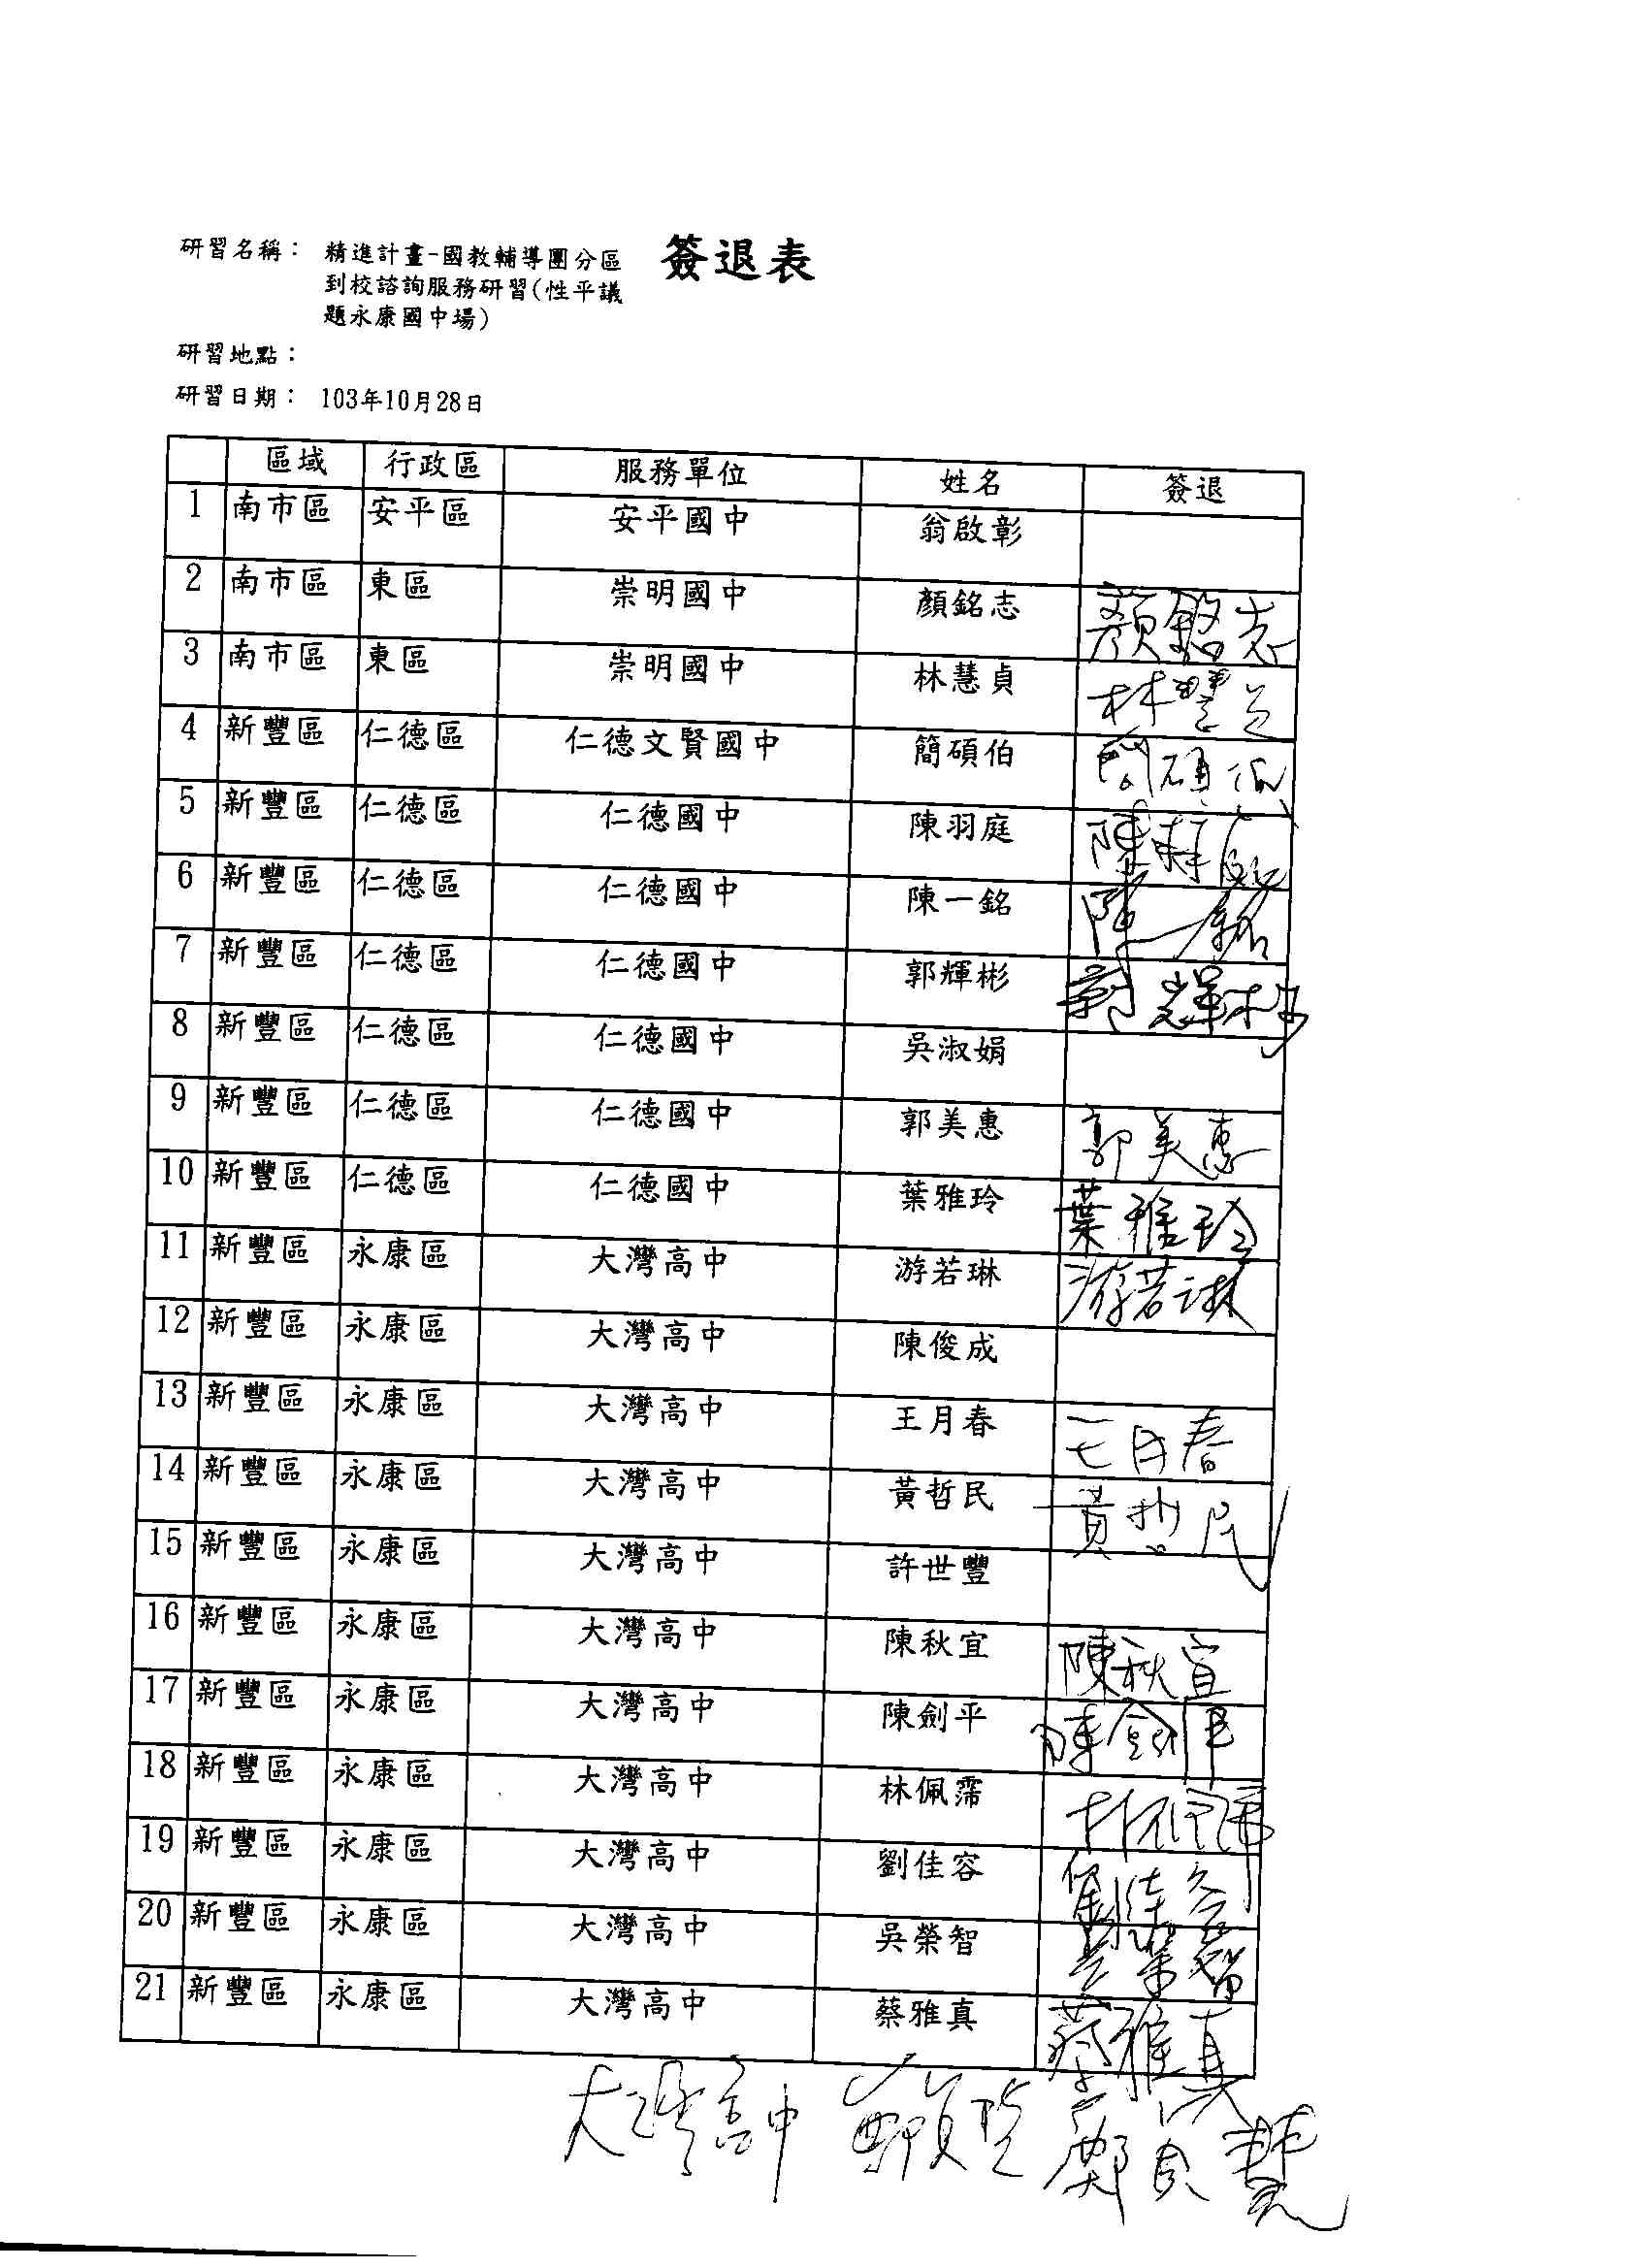 簽退表
研習名稱： 精進計畫-國教輔導團分區
到校諮詢服務研習(性平議
題永康國中場)
研習地點：
研習日期： 103年10月28日
區域 行政區 服務單位 姓名 簽退
1 南市區 安平區 安平國中 翁啟彰
2 南市區 東區 崇明國中 顏銘志 顏銘志
3 南市區 東區 崇明國中 林慧貞 林慧貞
4 新豐區 仁德區 仁德文賢國中 簡碩伯 簡碩伯
5 新豐區 仁德區 仁德國中 陳羽庭 陳
6 新豐區 仁德區 仁德國中 陳一銘 陳一銘
7 新豐區 仁德區 仁德國中 郭輝彬 郭輝彬
8 新豐區 仁德區 仁德國中 吳淑娟
9 新豐區 仁德區 仁德國中 郭美惠 郭美惠
10 新豐區 仁德區 仁德國中 葉雅玲 葉雅玲
11 新豐區 永康區 大灣高中 游若琳 游若琳
12 新豐區 永康區 大灣高中 陳俊成
13 新豐區 永康區 大灣高中 王月春 王月春
14 新豐區 永康區 大灣高中 黃哲民 黃哲民
15 新豐區 永康區 大灣高中 許世豐
16 新豐區 永康區 大灣高中 陳秋宜 陳秋宜
17 新豐區 永康區 大灣高中 陳劍平 陳劍平
18 新豐區 永康區 大灣高中 林佩霈 林佩霈
19 新豐區 永康區 大灣高中 劉佳容 劉佳容
20 新豐區 永康區 大灣高中 吳榮智 吳榮智
21 新豐區 永康區 大灣高中 蔡雅真 蔡雅真
大灣高中 鄭貝慧